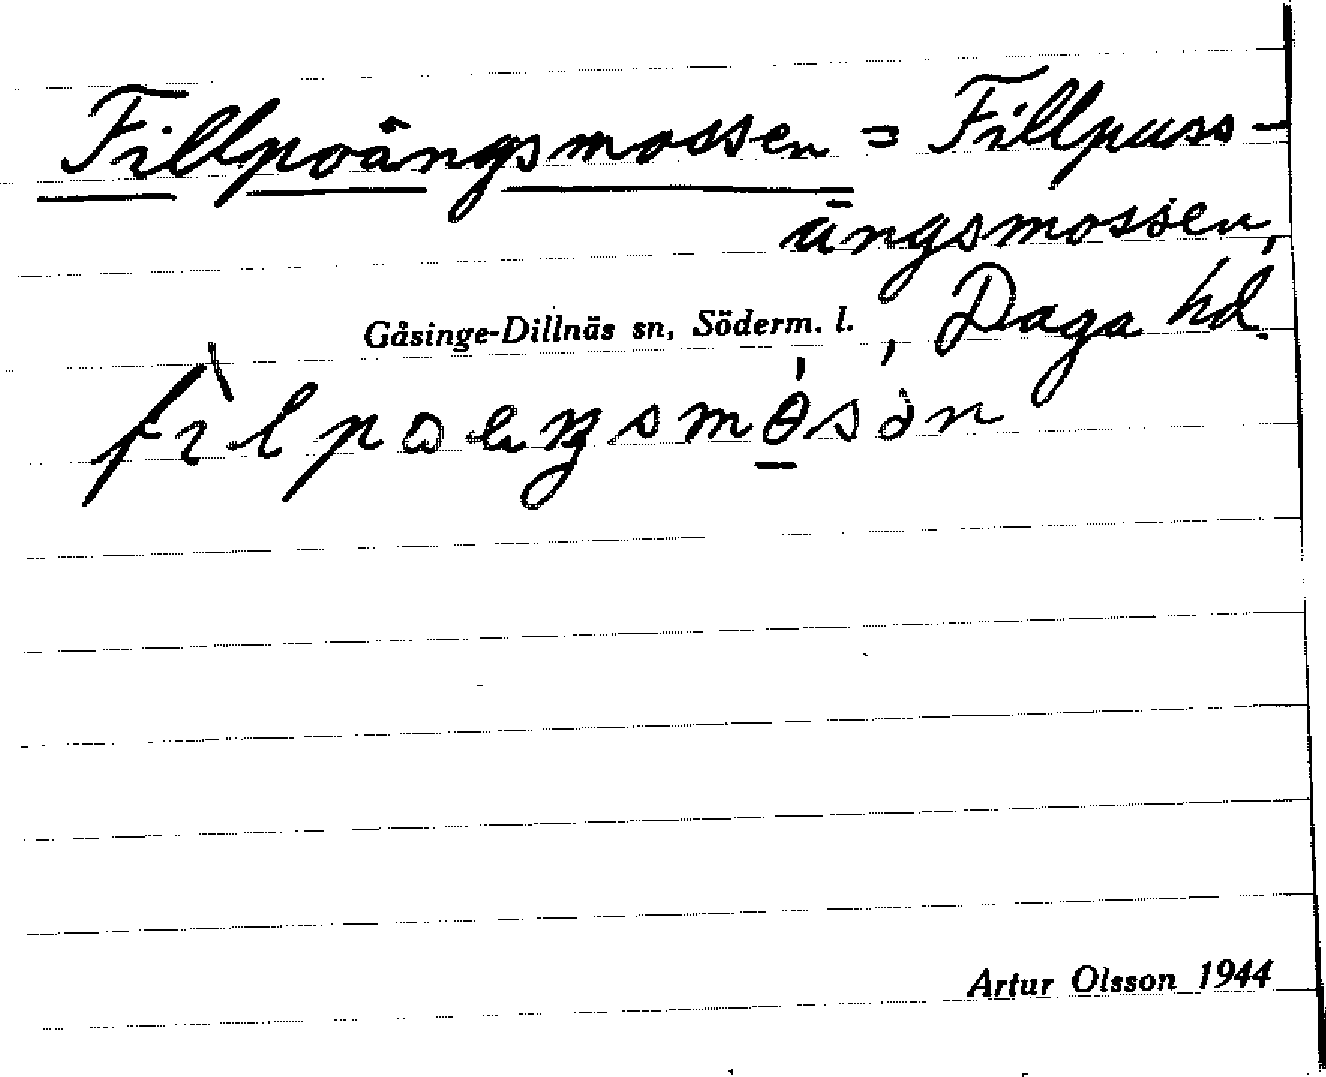 Fillpoängsmossen = Fillpuss-
ängsmossen,
Gåsinge-Dillnäs sn, Söderm. l. , Daga hd.
Artur Olsson 1944